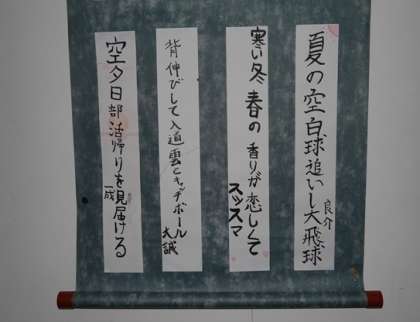 夏の空白球追いし大飛球
良介
寒い冬春の香りが恋しくて
スッスマ
背伸びして入道雲とキャッチボール
大誠
空夕日部活帰りを見届ける
一成